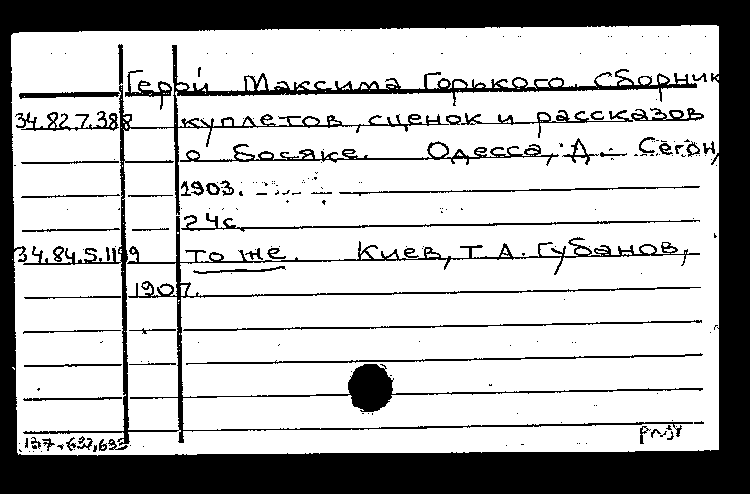 Герой Максима Горького. Сборник
34.82.7.388 куплетов, сценок и рассказов
о босяке. Одесса, А. Сегон,
1903.
24с.
34.84.5.1199 То же. Киев, Т.А. Губанов,
1907.